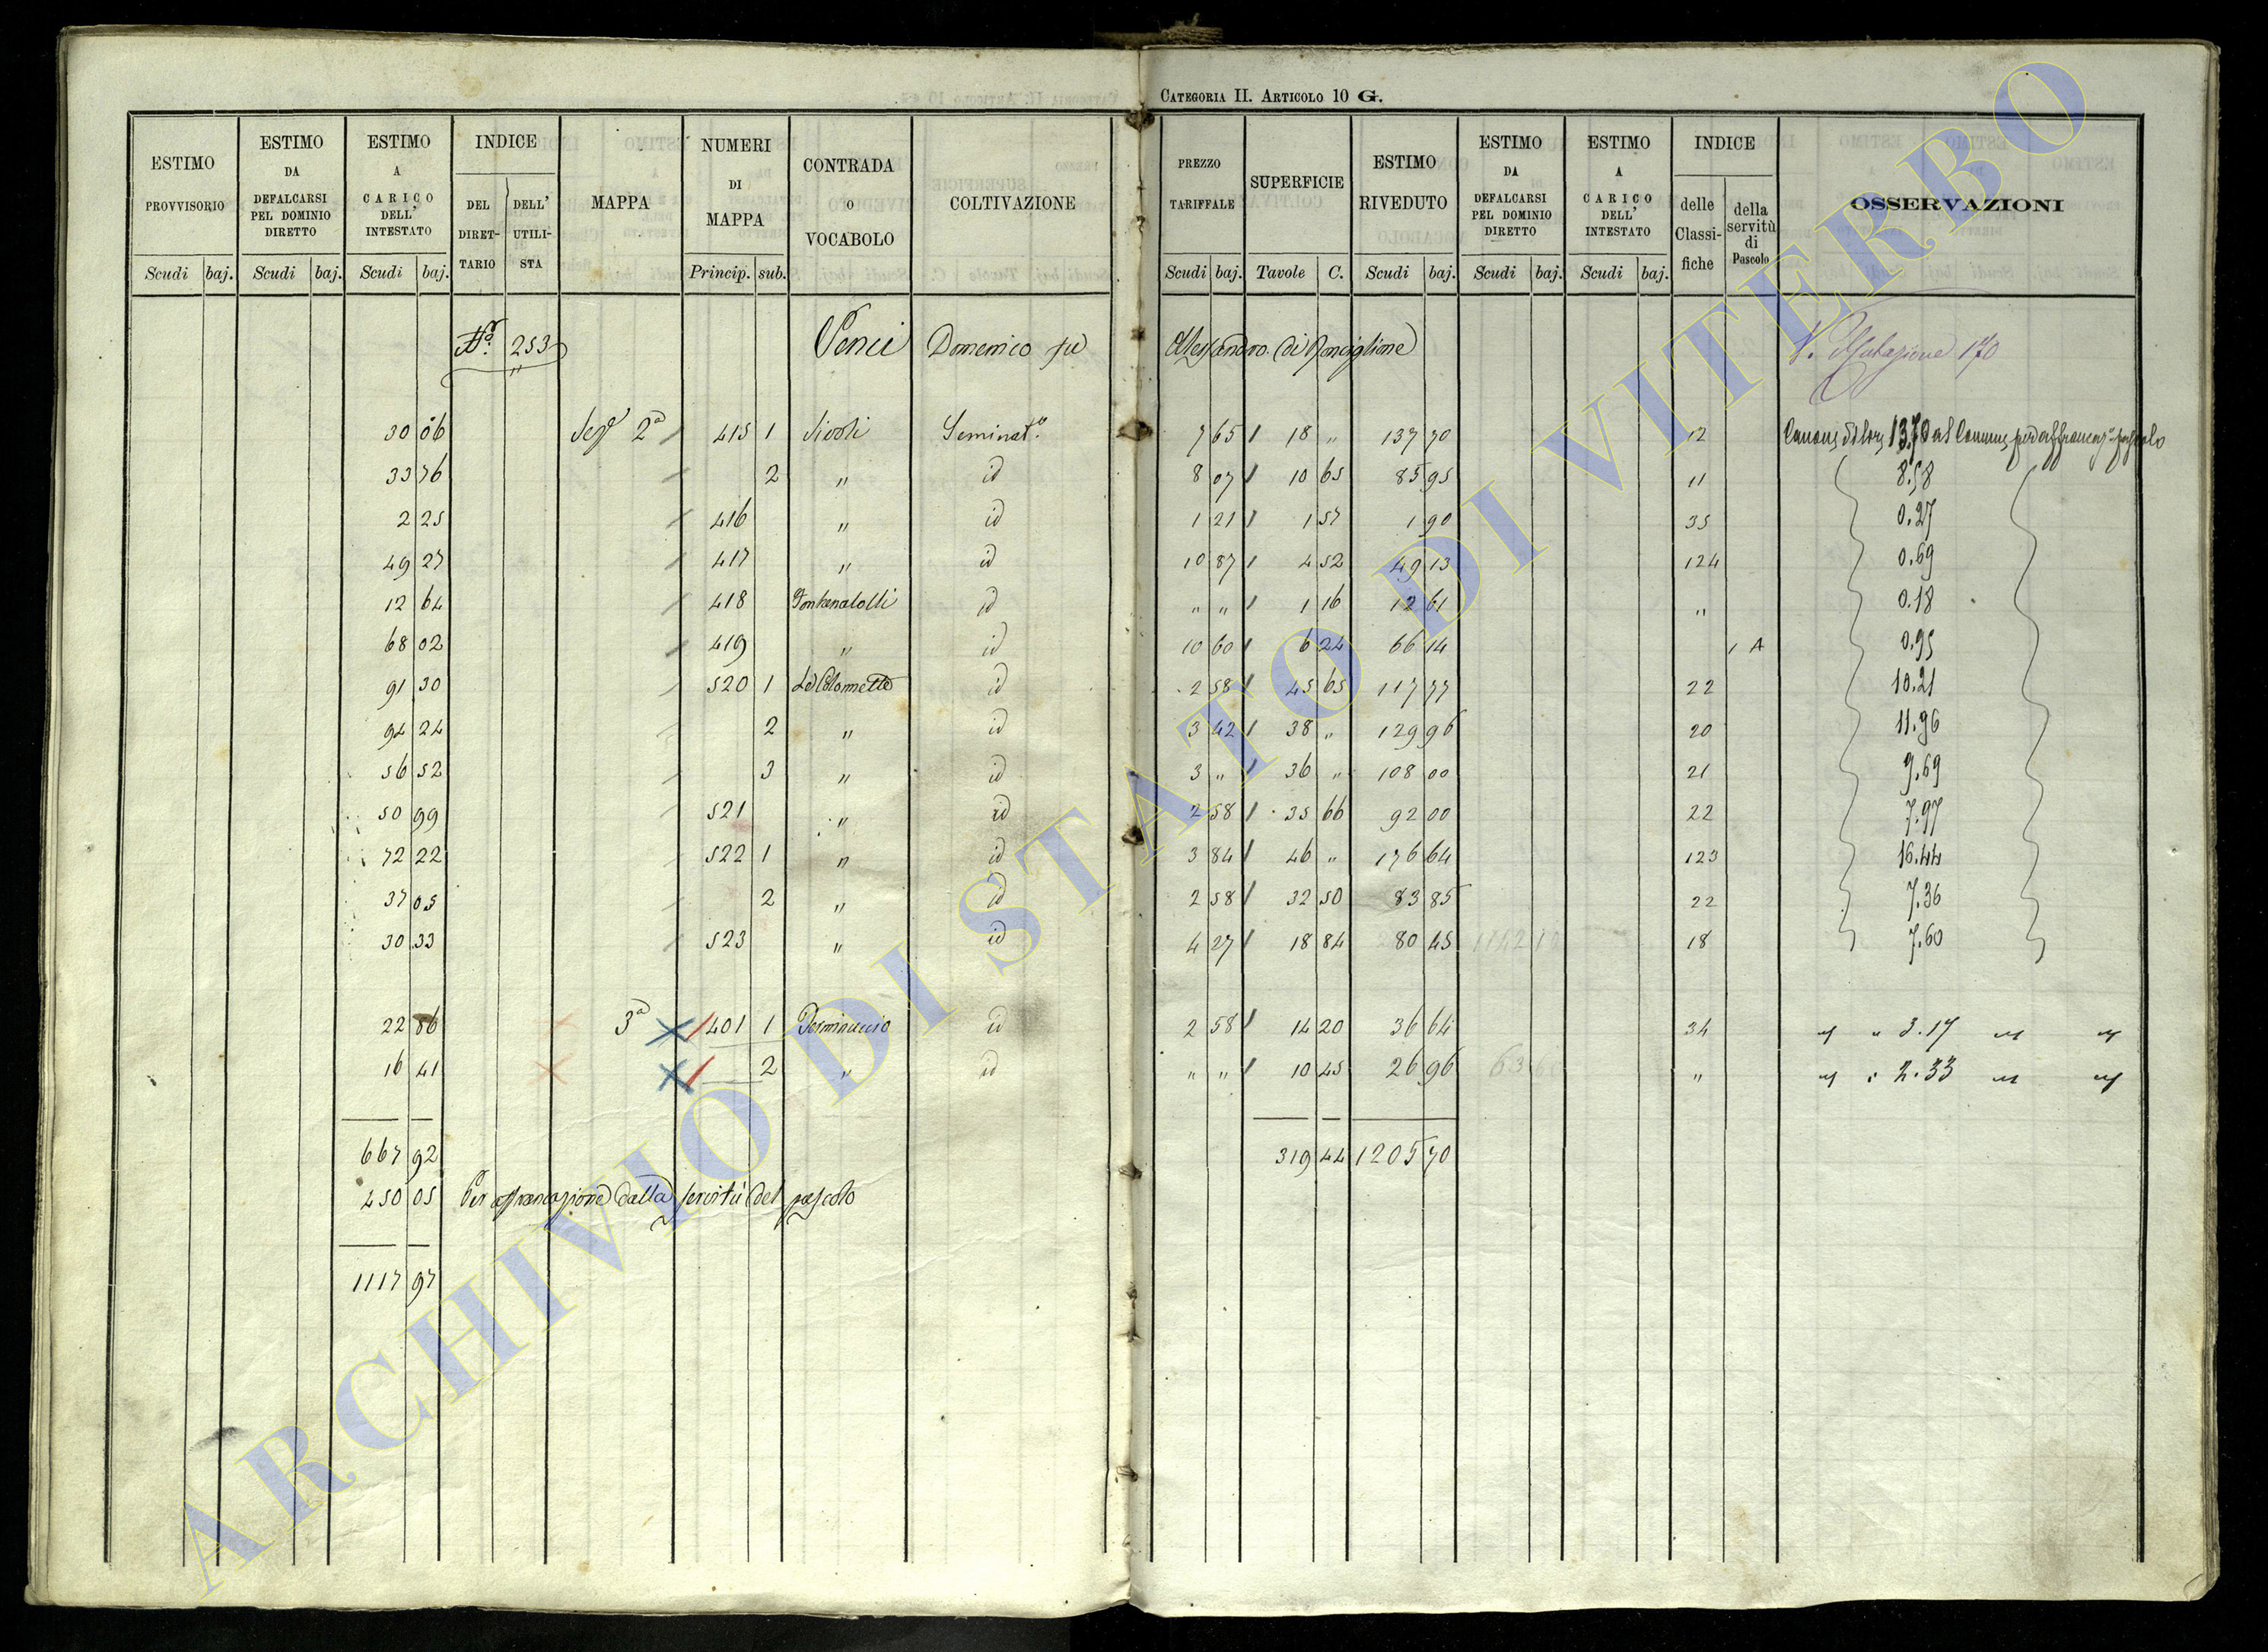 CATEGORIA II. ARTICOLO 10 G.
ESTIMO PROVVISORIO Scudi baj.
ESTIMO DA DEFALCARSI PEL DOMINIO DIRETTO Scudi baj.
ESTIMO A CARICO DELL' INTESTATO Scudi baj.
INDICE DEL DIRET-TARIO DELL' UTILI-STA
MAPPA
NUMERI DI MAPPA Princip. sub.
CONTRADA O VOCABOLO
COLTIVAZIONE
PREZZO TARIFFALE Scudi baj.
SUPERFICIE Tavole C.
ESTIMO RIVEDUTO Scudi baj.
ESTIMO DA DEFALCARSI PEL DOMINIO DIRETTO Scudi baj.
ESTIMO A CARICO DELL' INTESTATO Scudi baj.
INDICE delle Classi-fiche della servitù di Pascolo
OSSERVAZIONI
N.° 253 Domenico fu Alessandro di Ronciglione V. Mutazione 170
30 06 Sez.e 2a 415 1 Seminat.o 7 65 18 " 137 70 12 Canone di lire 13.70 al Comune per affrancaz.e pascolo
33 76 2 " id 8 07 10 65 85 95 11 8.58
2 25 416 " id 1 21 1 57 1 90 35 0.27
49 27 417 " id 10 87 4 52 49 13 124 0.69
12 64 418 id " " 1 16 12 61 " 0.18
68 02 419 " id 10 60 6 24 66 14 1 A 0.95
91 30 520 1 Le Colonnette id 2 58 45 65 117 77 22 10.21
94 24 2 " id 3 42 38 " 129 96 20 11.96
56 52 3 " id 3 " 36 " 108 00 21 9.69
50 99 521 " id 2 58 35 66 92 00 22 7.97
72 22 522 1 " id 3 84 46 " 176 64 123 16.44
37 05 2 " id 2 58 32 50 83 85 22 7.36
30 33 523 " id 4 27 18 84 80 45 18 7.60
22 86 3a 401 1 id 2 58 14 20 36 64 34 " " 3.17 " "
16 41 2 " id " " 10 45 26 96 " " " 2.33 " "
667 92 319 44 1205 70
450 05 Per affrancazione dalla servitù del pascolo
1117 97
ARCHIVIO DI STATO DI VITERBO